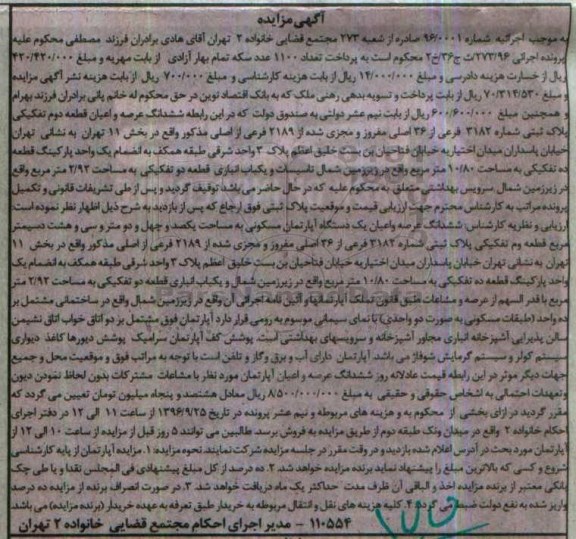 آگهی مزایده
به موجب اجرائیه شماره 96/0001 صادره از شعبه 273 مجتمع قضایی خانواده 2 تهران آقای هادی برادران فرزند مصطفی محکوم علیه
پرونده اجرائی 273/96/ث ج/36خ2 محکوم است به پرداخت تعداد 1100 عدد سکه تمام بهار آزادی از بابت مهریه و مبلغ 420/420/000
ریال از خسارت هزینه دادرسی و مبلغ 14/000/000 ریال از بابت هزینه کارشناسی و مبلغ 700/000 ریال از بابت هزینه نشر آگهی مزایده
و مبلغ 70/314/530 ریال از بابت پرداخت و تسویه بدهی رهنی ملک که به بانک اقتصاد نوین در حق محکوم له خانم پانی برادران فرزند بهرام
و همچنین مبلغ 600/600/000 ریال از بابت نیم عشر دولتی به صندوق دولت که در این رابطه ششدانگ عرصه و اعیان قطعه دوم تفکیکی
پلاک ثبتی شماره 3182 فرعی از 36 اصلی مفروز و مجزی شده از 2189 فرعی از اصلی مذکور واقع در بخش 11 تهران به نشانی تهران
خیابان پاسداران میدان اختیاریه خیابان فتاحیان بن بست خلیق اعظم پلاک 3 واحد شرقی طبقه همکف به انضمام یک واحد پارکینگ قطعه
ده تفکیکی به مساحت 10/80 متر مربع واقع در زیرزمین شمال تاسیسات و یکباب انباری قطعه دو تفکیکی به مساحت 2/92 متر مربع واقع
در زیرزمین شمال سرویس بهداشتی متعلق به محکوم علیه که در حال حاضر می باشد توقیف گردید و پس از طی تشریفات قانونی و تکمیل
پرونده مراتب به کارشناس محترم جهت ارزیابی قیمت و موقعیت پلاک ثبتی فوق ارجاع که پس از بازدید به شرح ذیل اظهار نظر نموده است:
ارزیابی و نظریه کارشناس: ششدانگ عرصه واعیان یک دستگاه آپارتمان مسکونی به مساحت یکصد و چهل و دو متر و سی و هشت دسیمتر
مربع قطعه وم تفکیکی پلاک ثبتی شماره 3182 فرعی از 36 اصلی مفروز و مجزی شده از 2189 فرعی از اصلی مذکور واقع در بخش 11
تهران به نشانی تهران خیابان پاسداران میدان اختیاریه خیابان فتاحیان بن بست خلیق اعظم پلاک 3 واحد شرقی طبقه همکف به انضمام یک
واحد پارکینگ قطعه ده تفکیکی به مساحت 10/80 متر مربع واقع در زیرزمین شمال و یکباب انباری قطعه دو تفکیکی به مساحت 2/92 متر
مربع با قدر السهم از عرصه و مشاعات طبق قانون تملک آپارتمانها و آئین نامه اجرائی آن واقع در زیرزمین شمال واقع در ساختمانی مشتمل بر
ده واحد (طبقات مسکونی به صورت دو واحدی) با نمای سیمانی موسوم به رومی قرار دارد آپارتمان فوق مشتمل بر دو اتاق خواب اتاق نشیمن
سالن پذیرایی آشپزخانه انباری مجاور آشپزخانه و سرویسهای بهداشتی است. پوشش کف آپارتمان سرامیک پوشش دیورها کاغذ دیواری
سیستم کولر و سیستم گرمایش شوفاژ می باشد. آپارتمان دارای آب و برق وگاز و تلفن است با توجه به مراتب فوق و موقعیت محل و جمیع
جهات دیگر موثر در این رابطه قیمت عادلانه روز ششدانگ عرصه و اعیان آپارتمان مورد نظر با مشاعات مشترکات بدون لحاظ نمودن دیون
و تعهدات احتمالی به اشخاص حقوقی و حقیقی به مبلغ 8/500/000/000 ریال معادل هشتصد و پنجاه میلیون تومان تعیین می گردد که
مقرر گردید در ازای بخشی از محکوم به و هزینه های مربوطه و نیم عشر پرونده در تاریخ 1396/9/25 از ساعت 11 الی 12 در دفتر اجرای
احکام خانواده 2 واقع در میدان ونک طبقه دوم از طریق مزایده به فروش برسد. طالبین می توانند 5 روز قبل از مزایده از ساعت 10 الی 12 از
آپارتمان مورد بحث در آدرس اعلام شده بازدید و در وقت مقرر در جلسه مزایده شرکت نمایند. نحوه مزایده: 1. مزایده آپارتمان از پایه کارشناسی
شروع و کسی که بالاترین مبلغ را پیشنهاد نماید برنده مزایده خواهد شد. 2. ده درصد از کل مبلغ پیشنهادی فی المجلس نقدا و یا طی چک
بانکی معتبر از برنده مزایده اخذ و الباقی آن ظرف مدت حداکثر یک ماه دریافت خواهد شد. 3. در صورت انصراف برنده از مزایده ده درصد
واریز شده به نفع دولت ضبط می گردد. 4. کلیه هزینه های نقل و انتقال مربوطه به خریدار طبق تعرفه به عهده خریدار (برنده مزایده) می باشد
110554 – مدیر اجرای احکام مجتمع قضایی خانواده 2 تهران